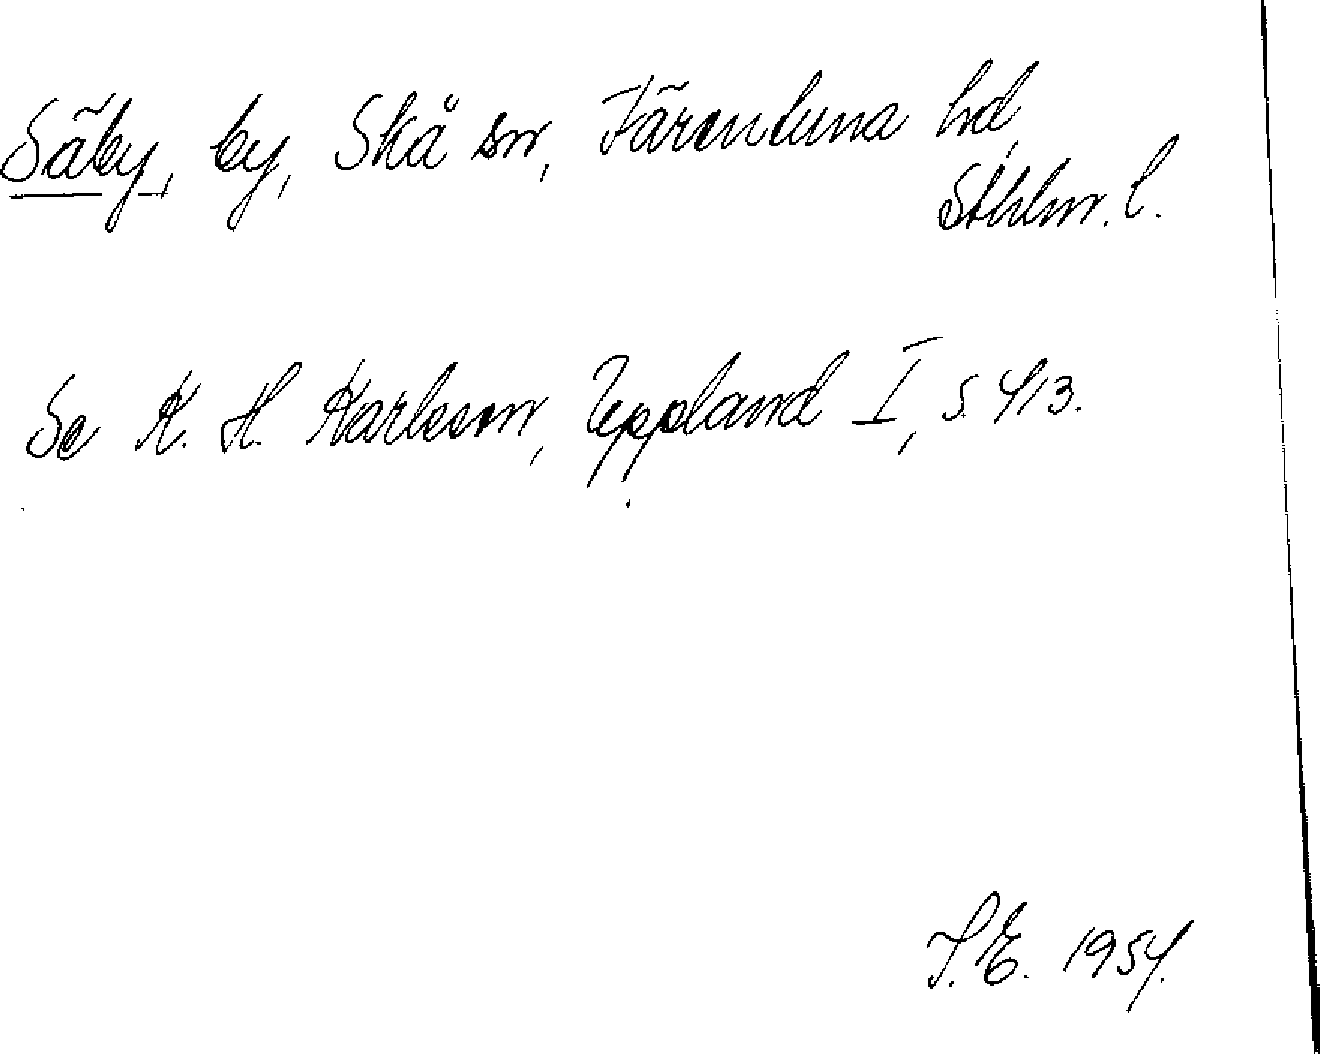 Säby, by, Skå sn, Färentuna hd,
Sthlm. l.
Se K. H. Karlsson, Uppland I, s. 413.
I. E. 1954.